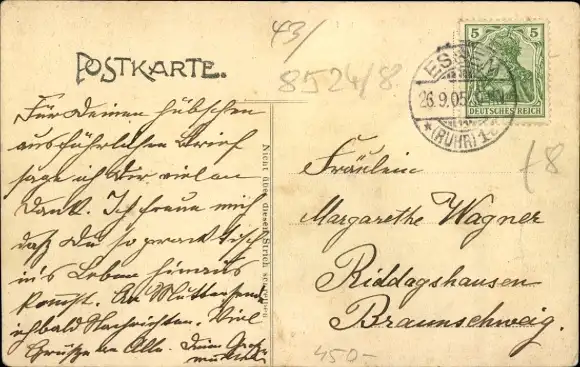 43/
8524/8
POSTKARTE.
5 5
DEUTSCHES REICH
ESSEN
26.9.05
*(RUHR)1
f8
Für Deinen hübschen
ausführlichen Brief
sage ich Dir vielen
Dank. Ich freue mich
daß Du so praktisch
in's Leben hinaus
kommst. An Mutter sende
ich bald Nachrichten. Viel
Grüße an Alle. Deine Groß-
mutter
Nicht über diesen Strich schreiben
Fräulein
Margarethe Wagner
Riddagshausen
Braunschweig.
450-